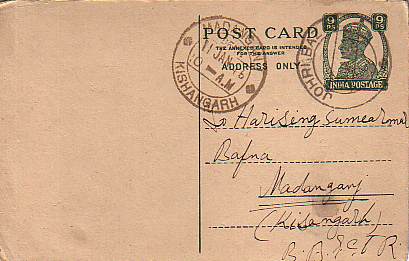 POST CARD
THE ANNEXED CARD IS INTENDED
FOR THE ANSWER
ADDRESS ONLY
9 PS
9 PS
INDIA POSTAGE
MADANGANJ
11 JAN
10 - A.M
KISHANGARH
JOHRI BA
To Harising Sumearmal
Bafna
Madanganj
(Kisangarh)
B. B. & C. I. R.